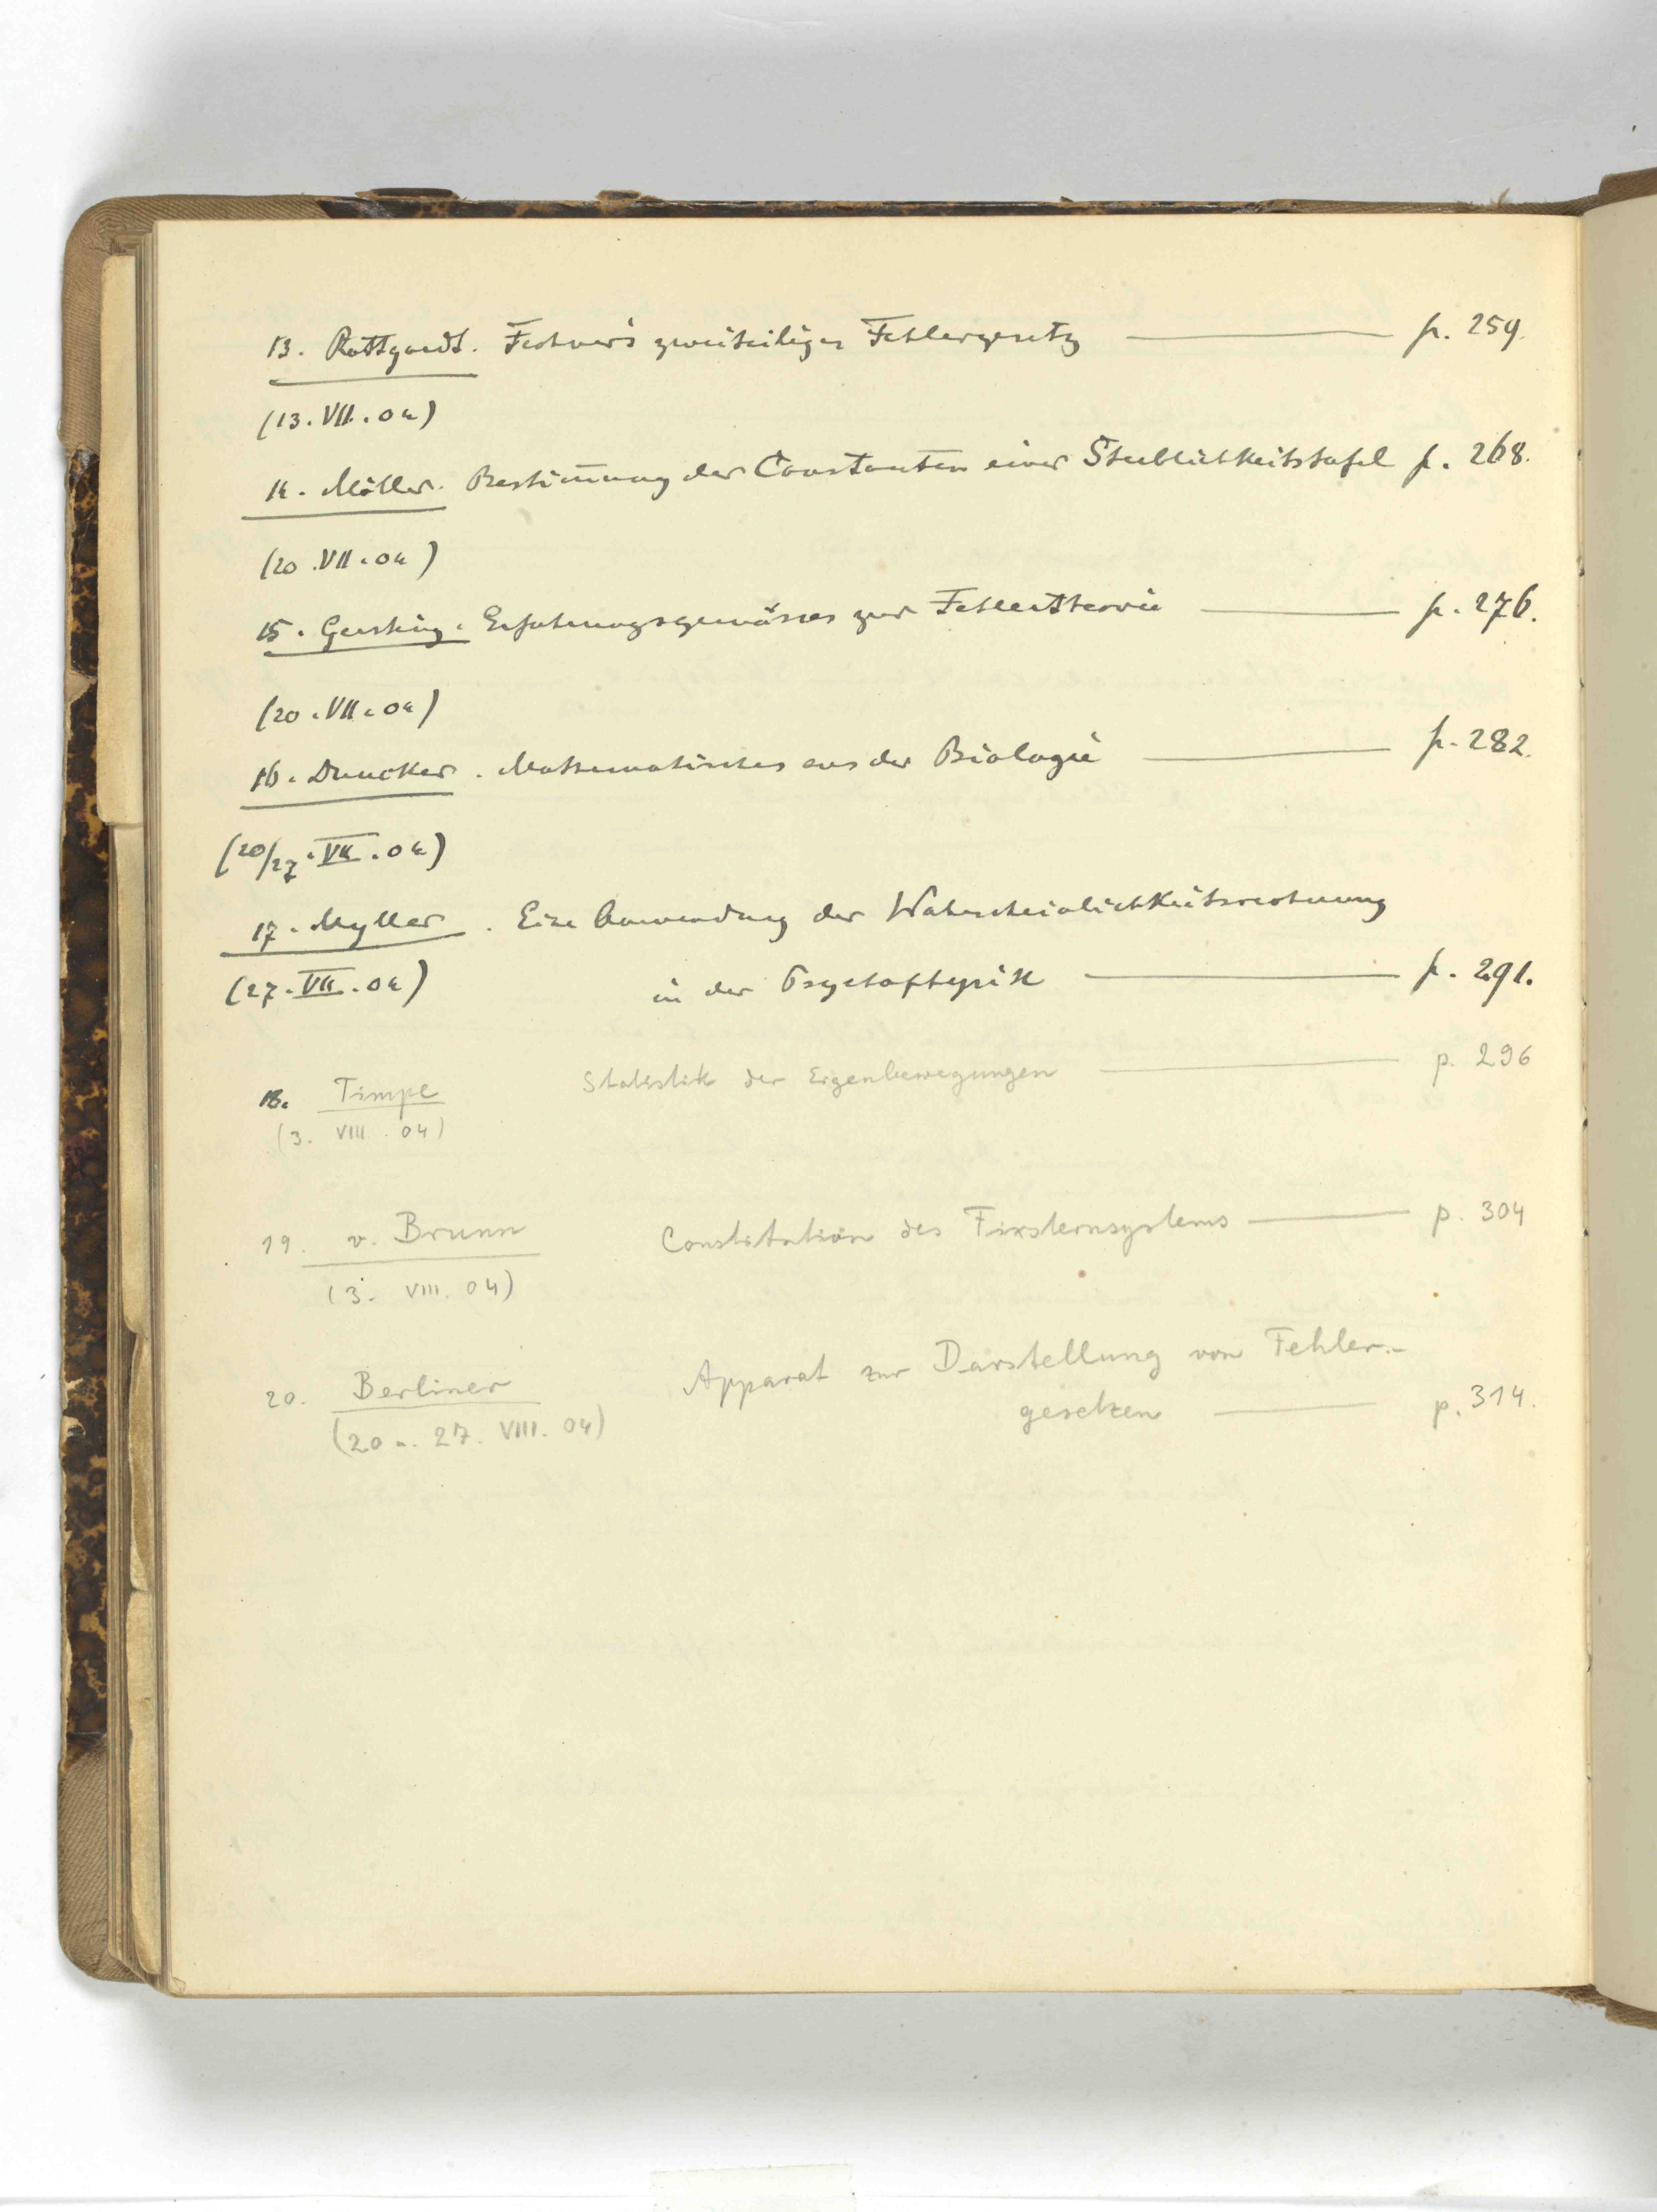 13. Rottgardt. Fechner's zweiseitiges Fehlergesetz — p. 259.
(13. VII. 04)
14. Möller. Bestim̅ung der Constanten einer Sterblichkeitstafel p. 268.
(20. VII. 04)
15. Gersting. Erfahrungsgemässes zur Fehlertheorie — p. 276.
(20. VII. 04)
16. Duncker. Mathematisches aus der Biologie — p. 282.
(20/27. VII. 04)
17. Myller. Eine Anwendung der Wahrscheinlichkeitsrechnung
(27. VII. 04) in der Psychophysik — p. 291.
18. Timpe Statistik der Eigenbewegungen — p. 296
(3. VIII. 04)
19. v. Brunn Constitution des Fixsternsystems — p. 304
(3. VIII. 04)
20. Berliner Apparat zur Darstellung von Fehler-
gesetzen — p. 314.
(20 u. 27. VIII. 04)